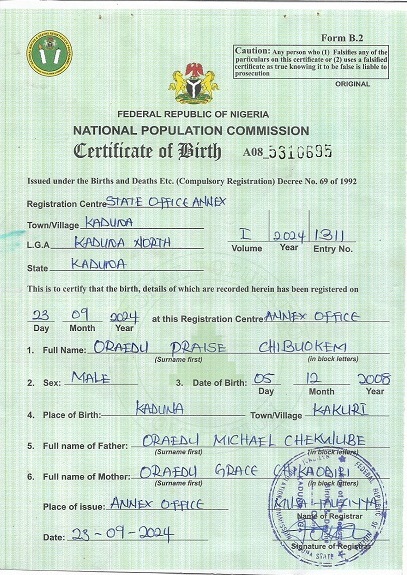 Form B.2
Caution: Any person who (1) Falsifies any of the
particulars on this certificate or (2) uses a falsified
certificate as true knowing it to be false is liable to
prosecution
ORIGINAL
FEDERAL REPUBLIC OF NIGERIA
NATIONAL POPULATION COMMISSION
Certificate of Birth A08 5310695
Issued under the Births and Deaths Etc. (Compulsory Registration) Decree No. 69 of 1992
Registration Centre STATE OFFICE ANNEX
Town/Village KADUNA
L.G.A KADUNA NORTH
I 2024 1311
Volume Year Entry No.
State KADUNA
This is to certify that the birth, details of which are recorded herein has been registered on
23 09 2024 at this Registration Centre: ANNEX OFFICE
Day Month Year
1. Full Name: ORAEDU PRAISE CHIBUOKEM
(Surname first) (in block letters)
2. Sex: MALE 3. Date of Birth: 05 12 2008
Day Month Year
4. Place of Birth: KADUNA Town/Village KAKURI
5. Full name of Father: ORAEDU MICHAEL
(Surname first) (in block letters)
6. Full name of Mother: ORAEDU GRACE CHIKAODIRI
(Surname first) (in block letters)
Place of issue: ANNEX OFFICE
Name of Registrar
Date: 23-09-2024
Signature of Registrar